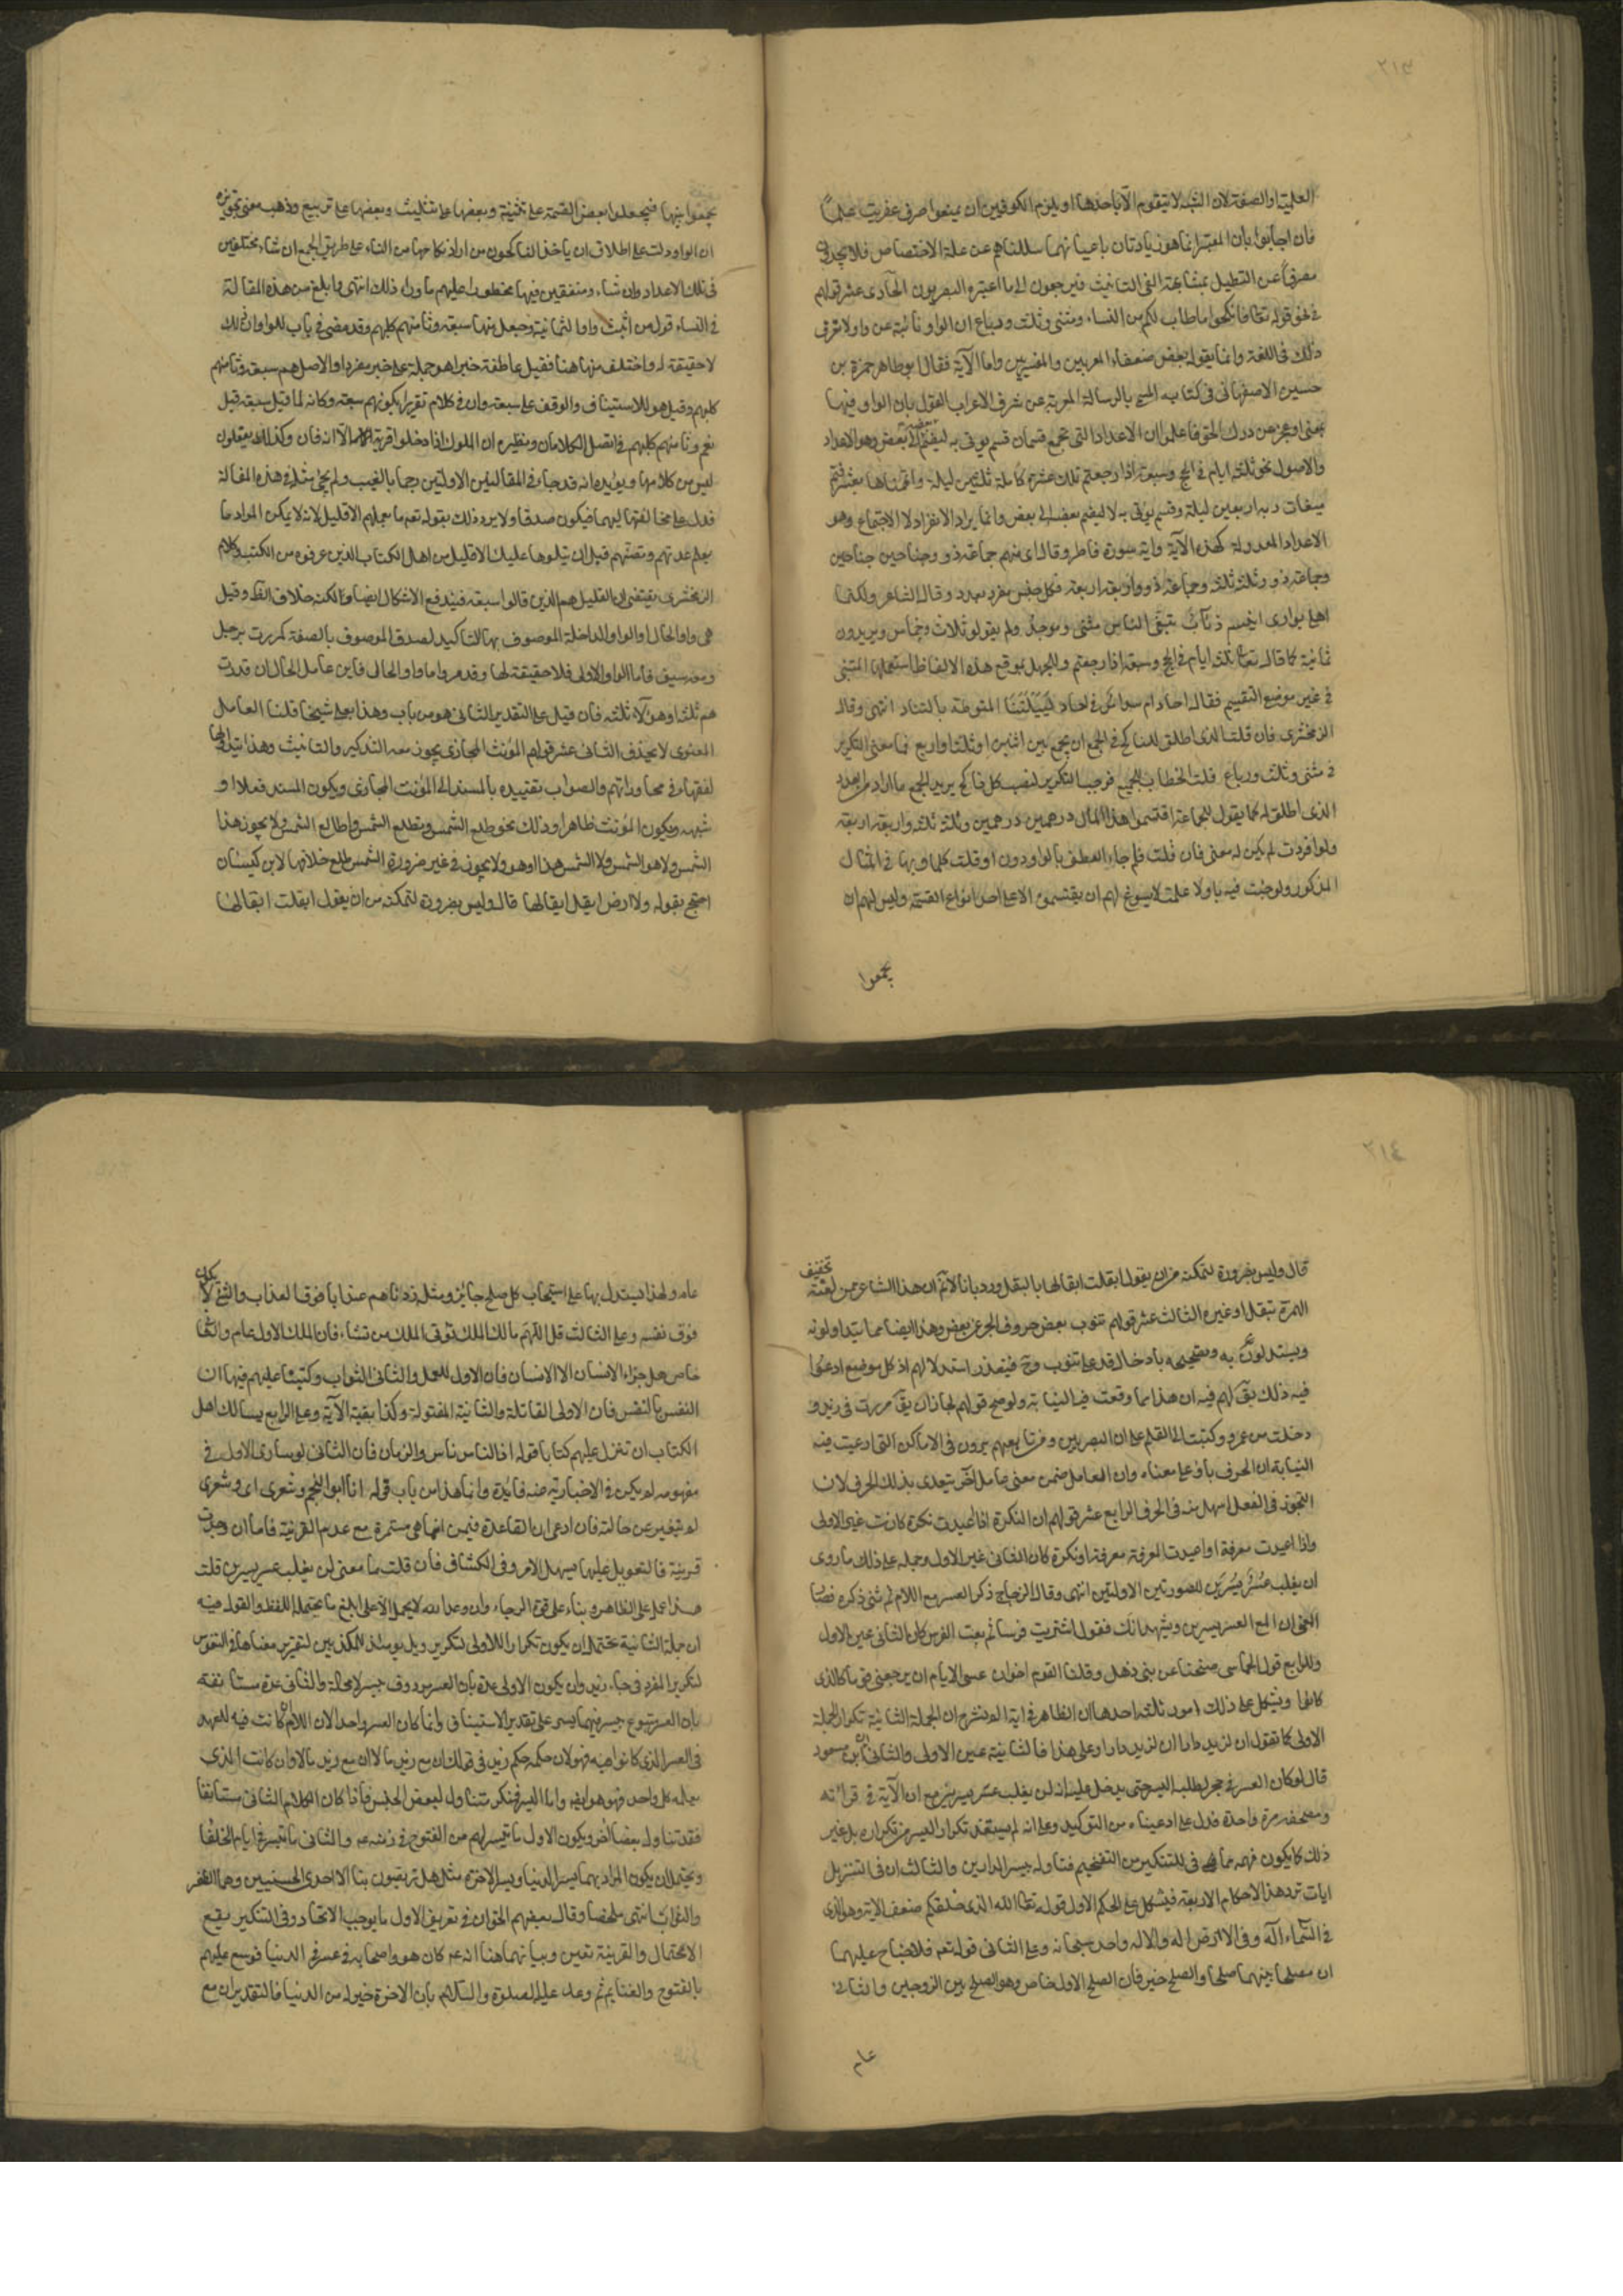 ٢١٣
العلمية او الصفة لان الشبه لا يتقوم الا باحدهما ويلزم الكوفيين ان يمنعوا صرف عفريت علما
فان اجابوا بان المعتبر انما هو زيادتان باعيانهما سالناهم عن علة الاختصاص فلا يجدون
مصرفا عن التعليل بمشابهة الفي التانيث فيرجعون الى ما اعتبره البصريون الحادى عشر قولهم
فى نحو قوله تعالى فانكحوا ما طاب لكم من النساء مثنى وثلث ورباع ان الواو نائبة عن او ولا تعرف
ذلك فى اللغة وانما يقوله بعض ضعفاء المعربين والمفسرين واما الآية فقال ابو طاهر حمزة بن
حسين الاصفهانى فى كتابه المسمى بالرسالة المعربة عن شرف الاعراب القول بان الواو فيها
بمعنى او عجز عن درك الحق فاعلموا ان الاعداد التى تجمع قسمان قسم يوتى به ليضم بعضه الى بعض وهو الاعداد
والاصول نحو ثلثة ايام فى الحج وسبعة اذا رجعتم تلك عشرة كاملة ثلثين ليلة واتممناها بعشر فتم
ميقات ربه اربعين ليلة وقسم يوتى به لا ليضم بعضه الى بعض وانما يراد الانفراد لا الاجتماع وهو
الاعداد المعدولة كهذه الآية واية سورة فاطر وقال اى منهم جماعة ذوو جناحين جناحين
وجماعة ذوو ثلثة ثلثة وجماعة ذوو اربعة اربعة فكل جنس مفرد بعدد وقال الشاعر ولكنما
اهلى بوادى انيسه ذئاب تبغى الناس مثنى وموحد ولم يقولوا ثلاث وخماس ويريدون
ثمانية كما قال تعالى ثلثة ايام فى الحج وسبعة اذا رجعتم وللجهل بموقع هذه الالفاظ استعملها المتنبى
فى غير موضع التقسيم فقال احاد ام سداس فى احاد لييلتنا المنوطة بالتناد انتهى وقال
الزمخشرى فان قلت الذى اطلق للناكح فى الجمع ان يجمع بين اثنين او ثلث او اربع فما معنى التكرير
فى مثنى وثلث ورباع قلت الخطاب للجميع فوجب التكرير ليصيب كل ناكح يريد الجمع ما اراد من العدد
الذى اطلق له كما يقول للجماعة اقتسموا هذا المال درهمين درهمين وثلثة ثلثة واربعة اربعة
ولو افردت لم يكن له معنى فان قلت فلم جاء العطف بالواو دون او قلت كما جاء بها فى المثال
المذكور ولو جئت فيه باو لا علمت لا يسوغ لهم ان يقتسموه الا على احد انواع القسمة وليس لهم ان
يجمعوا
يجمعوا بينها فيجعلوا بعض القسمة على تثنية وبعضها على تثليث وبعضها على تربيع وذهب معنى تجويز
ان الواو دلت على اطلاق ان ياخذ الناكحون من ارادوا نكاحها من النساء على طريق الجمع ان شاءوا مختلفين
فى تلك الاعداد وان شاءوا متفقين فيها محظورا عليهم ما وراء ذلك انتهى وابلغ من هذه المقالة
فى الفساد قول من اثبت واو الثمانية وجعل منها سبعة وثامنهم كلبهم وقد مضى فى باب الواو ان ذلك
لا حقيقة له واختلف منها هنا فقيل عاطفة خبرا هو جملة على خبر مفرد والاصل هم سبعة وثامنهم
كلبهم وقيل هو للاستيناف والوقف على سبعة وان فى الكلام تقرير لكونهم سبعة وكانه لما قيل سبعة قيل
نعم وثامنهم كلبهم فاتصل الكلامان ونظيره ان الملوك اذا دخلوا قرية الآية فان وكذلك يفعلون
ليس من كلامها ويؤيده انه قد جاء فى المقالتين الاولتين رجما بالغيب ولم يجئ مثله فى هذه المقالة
فدل على مخالفتها لهما فيكون صدقا ولا يرد ذلك بقوله تعم ما يعلمهم الا قليل لانه لا يمكن المراد ما
يعلم عدتهم وقصتهم قبل ان يتلوها عليك الا قليل من اهل الكتاب الذين عرفوه من الكتب وكلام
الزمخشرى يقتضى ان القليل هم الذين قالوا سبعة فيندفع الاشكال ايضا ولكنه خلاف الظ وقيل
هى واو الحال او الواو الداخلة الموصوف بها لتاكيد لصدق الموصوف بالصفة كمررت برجل
ومعه سيف فاما الواو الاولى فلا حقيقة لها وقد مر واما واو الحال فاين عامل الحال ان قدرت
هم ثلثة او هؤلاء ثلثة فان قيل على التقدير الثانى هو من باب وهذا بعلى شيخا قلنا العامل
المعنوى لا يحذف الثانى عشر قولهم المؤنث المجازى يجوز معه التذكير والتانيث وهذا يتداوله
الفقهاء فى محاوراتهم والصواب تقييده بالمسند الى المؤنث المجازى ويكون المسند فعلا او
شبهه وبكون المؤنث ظاهرا وذلك نحو طلع الشمس ويطلع الشمس واطالع الشمس ولا يجوز هذا
الشمس ولا هو الشمس ولا الشمس هذا او هو ولا يجوز فى غير ضرورة الشمس طلع خلافا لابن كيسان
احتج بقوله ولا ارض ابقل ابقالها قال وليس بضرورة لتمكنه من ان يقول ابقلت ابقالها
٢١٤
قال وليس بضرورة لتمكنه من ان يقول ابقلت ابقالها بالنقل ورد بانا لا نم ان هذا الشاعر من لغته تخفيف
الهمزة بنقل او غيره الثالث عشر قولهم تنوب بعض حروف الجر عن بعض وهذا ايضا مما يتداولونه
ويستدلون به وتصحيحه بادخال قد على تنوب وح فيتعذر استدلالهم اذ كل موضع ادعوا
فيه ذلك يق لهم فيه ان هذا مما وقعت فيه النيابة ولو صح قولهم لجاز ان يق مررت فى زيد و
دخلت من عمرو وكتبت الى القلم على ان البصريين ومن تابعهم يرون فى الاماكن التى ادعيت فيه
النيابة ان الحرف باق على معناه وان العامل ضمن معنى عامل آخر يتعدى بذلك الحرف لان
التجوز فى الفعل اسهل منه فى الحرف الرابع عشر قولهم ان النكرة اذا اعيدت نكرة كانت غير الاولى
واذا اعيدت معرفة او اعيدت المعرفة معرفة او نكرة كان الثانى عين الاول وحمله على ذلك ما روى
لن يغلب عسر يسرين للصورتين الاولتين انتهى وقال الزجاج ذكر العسر مع اللام ثم ثنى ذكره فصار
المعنى ان مع العسر يسرين ويشهد انك تقول اشتريت فرسا ثم بعت الفرس كان الثانى عين الاول
وللرابع قول الحماسى صفحنا عن بنى ذهل وقلنا القوم اخوان عسى الايام ان يرجعن قوما كالذى
كانوا ويشكل على ذلك امور ثلثة احدها ان الظاهر فى اية الم نشرح ان الجملة الثانية تكرار للجملة
الاولى كما تقول ان لزيد دارا ان لزيد دارا وعلى هذا فالثانية عين الاولى والثانى ان ابن مسعود
قال لو كان العسر فى جحر لطلبه اليسر حتى يدخل عليه انه لن يغلب عسر يسرين مع ان الآية فى قرائته
ومصحفه مرة واحدة فدل على ادعيناه من التوكيد وعلى انه لم يستفد تكرار اليسر من تكراره بل غير
ذلك كما يكون فهمه مما فى التنكير من التفخيم فتاوله بيسر الدارين والثالث ان فى التنزيل
ايات ترد هذه الاحكام الاربعة فيشكل على الحكم الاول قوله تعالى الله الذى خلقكم من ضعف الاية وهو الذى
فى السماء آله وفى الارض اله والاله واحد سبحانه وعلى الثانى قوله تعم فلا جناح عليهما
ان يصلحا بينهما صلحا والصلح خير فان الصلح الاول خاص وهو الصلح بين الزوجين والثانى
عام
عام ولهذا يستدل بها على استحباب كل صلح جايز ومثله زدناهم عذابا فوق العذاب والشئ لا يكون
فوق نفسه وعلى الثالث قل اللهم مالك الملك تؤتى الملك من تشاء فان الملك الاول عام والثانى
خاص هل جزاء الاحسان الا الاحسان فان الاول للعمل والثانى الثواب وكتبنا عليهم فيها ان
النفس بالنفس فان الاولى القاتلة والثانية المقتولة وكذا بقية الآية وعلى الرابع يسالك اهل
الكتاب ان تنزل عليهم كتابا قوله اذ الناس ناس والزمان فان الثانى لو ساوى الاول فى
مفهومه لم يكن فى الاخبار به عنه فايدة وانما هذا من باب قوله انا ابو النجم وشعرى اى وشعرى
لم يتغير عن حالته فان ادعى ان القاعدة فيهن انما هى مستمرة مع عدم القرينة فاما ان وجدت
قرينة فالتعويل عليها سهل الامر وفى الكشاف فان قلت ما معنى لن يغلب عسر يسرين قلت
هذا عمل على الظاهر وبناء على قوة الرجاء وان وعد الله لا يحمل الا على ابلغ ما يحتمله اللفظ والقول فيه
ان جملة الثانية تحتمل ان يكون تكرارا للاولى لتكرير ويل يومئذ للمكذبين لتقرير معناها فى النفوس
لتكرير المفرد فى جاء زيد زيد وان يكون الاولى عدة بان العسر مردوف بيسر لا محالة والثانى عدة مستانفة
بان العسر متبوع بيسر فيهما يسر على تقدير الاستيناف وانما كان العسر واحد الان اللام ان كانت فيه للعهد
فى العسر الذى كانوا فيه فهو لان حكمه حكم زيد فى قولك ان مع زيد مالا ان مع زيد مالا وان كانت الذى
يعلمه كل واحد فهو هو ايضا واما اليسر فنكر متناول لبعض الجنس فاذا كان الكلام الثانى مستانفا
فقد تناول بعضا اخر ويكون الاول ما تيسر لهم من الفتوح فى زمنه عم والثانى ما تيسر فى ايام الخلفاء
ويحتمل ان يكون المراد بهما يسر الدنيا ويسر الاخرة مثل هل تربصون بنا الا احدى الحسنيين وهما الظفر
والثواب انتهى ملخصا وقال بعضهم الحق ان فى تعريف الاول ما يوجب الاتحاد وفى التنكير يقع
الاحتمال والقرينة تعين وبيانهما هنا انه عم كان هو واصحابه فى عسر فى الدنيا فوسع عليهم
بالفتوح والغنايم ثم وعد عليه الصلوة والسلام بان الاخرة خير له من الدنيا فالتقدير ان مع